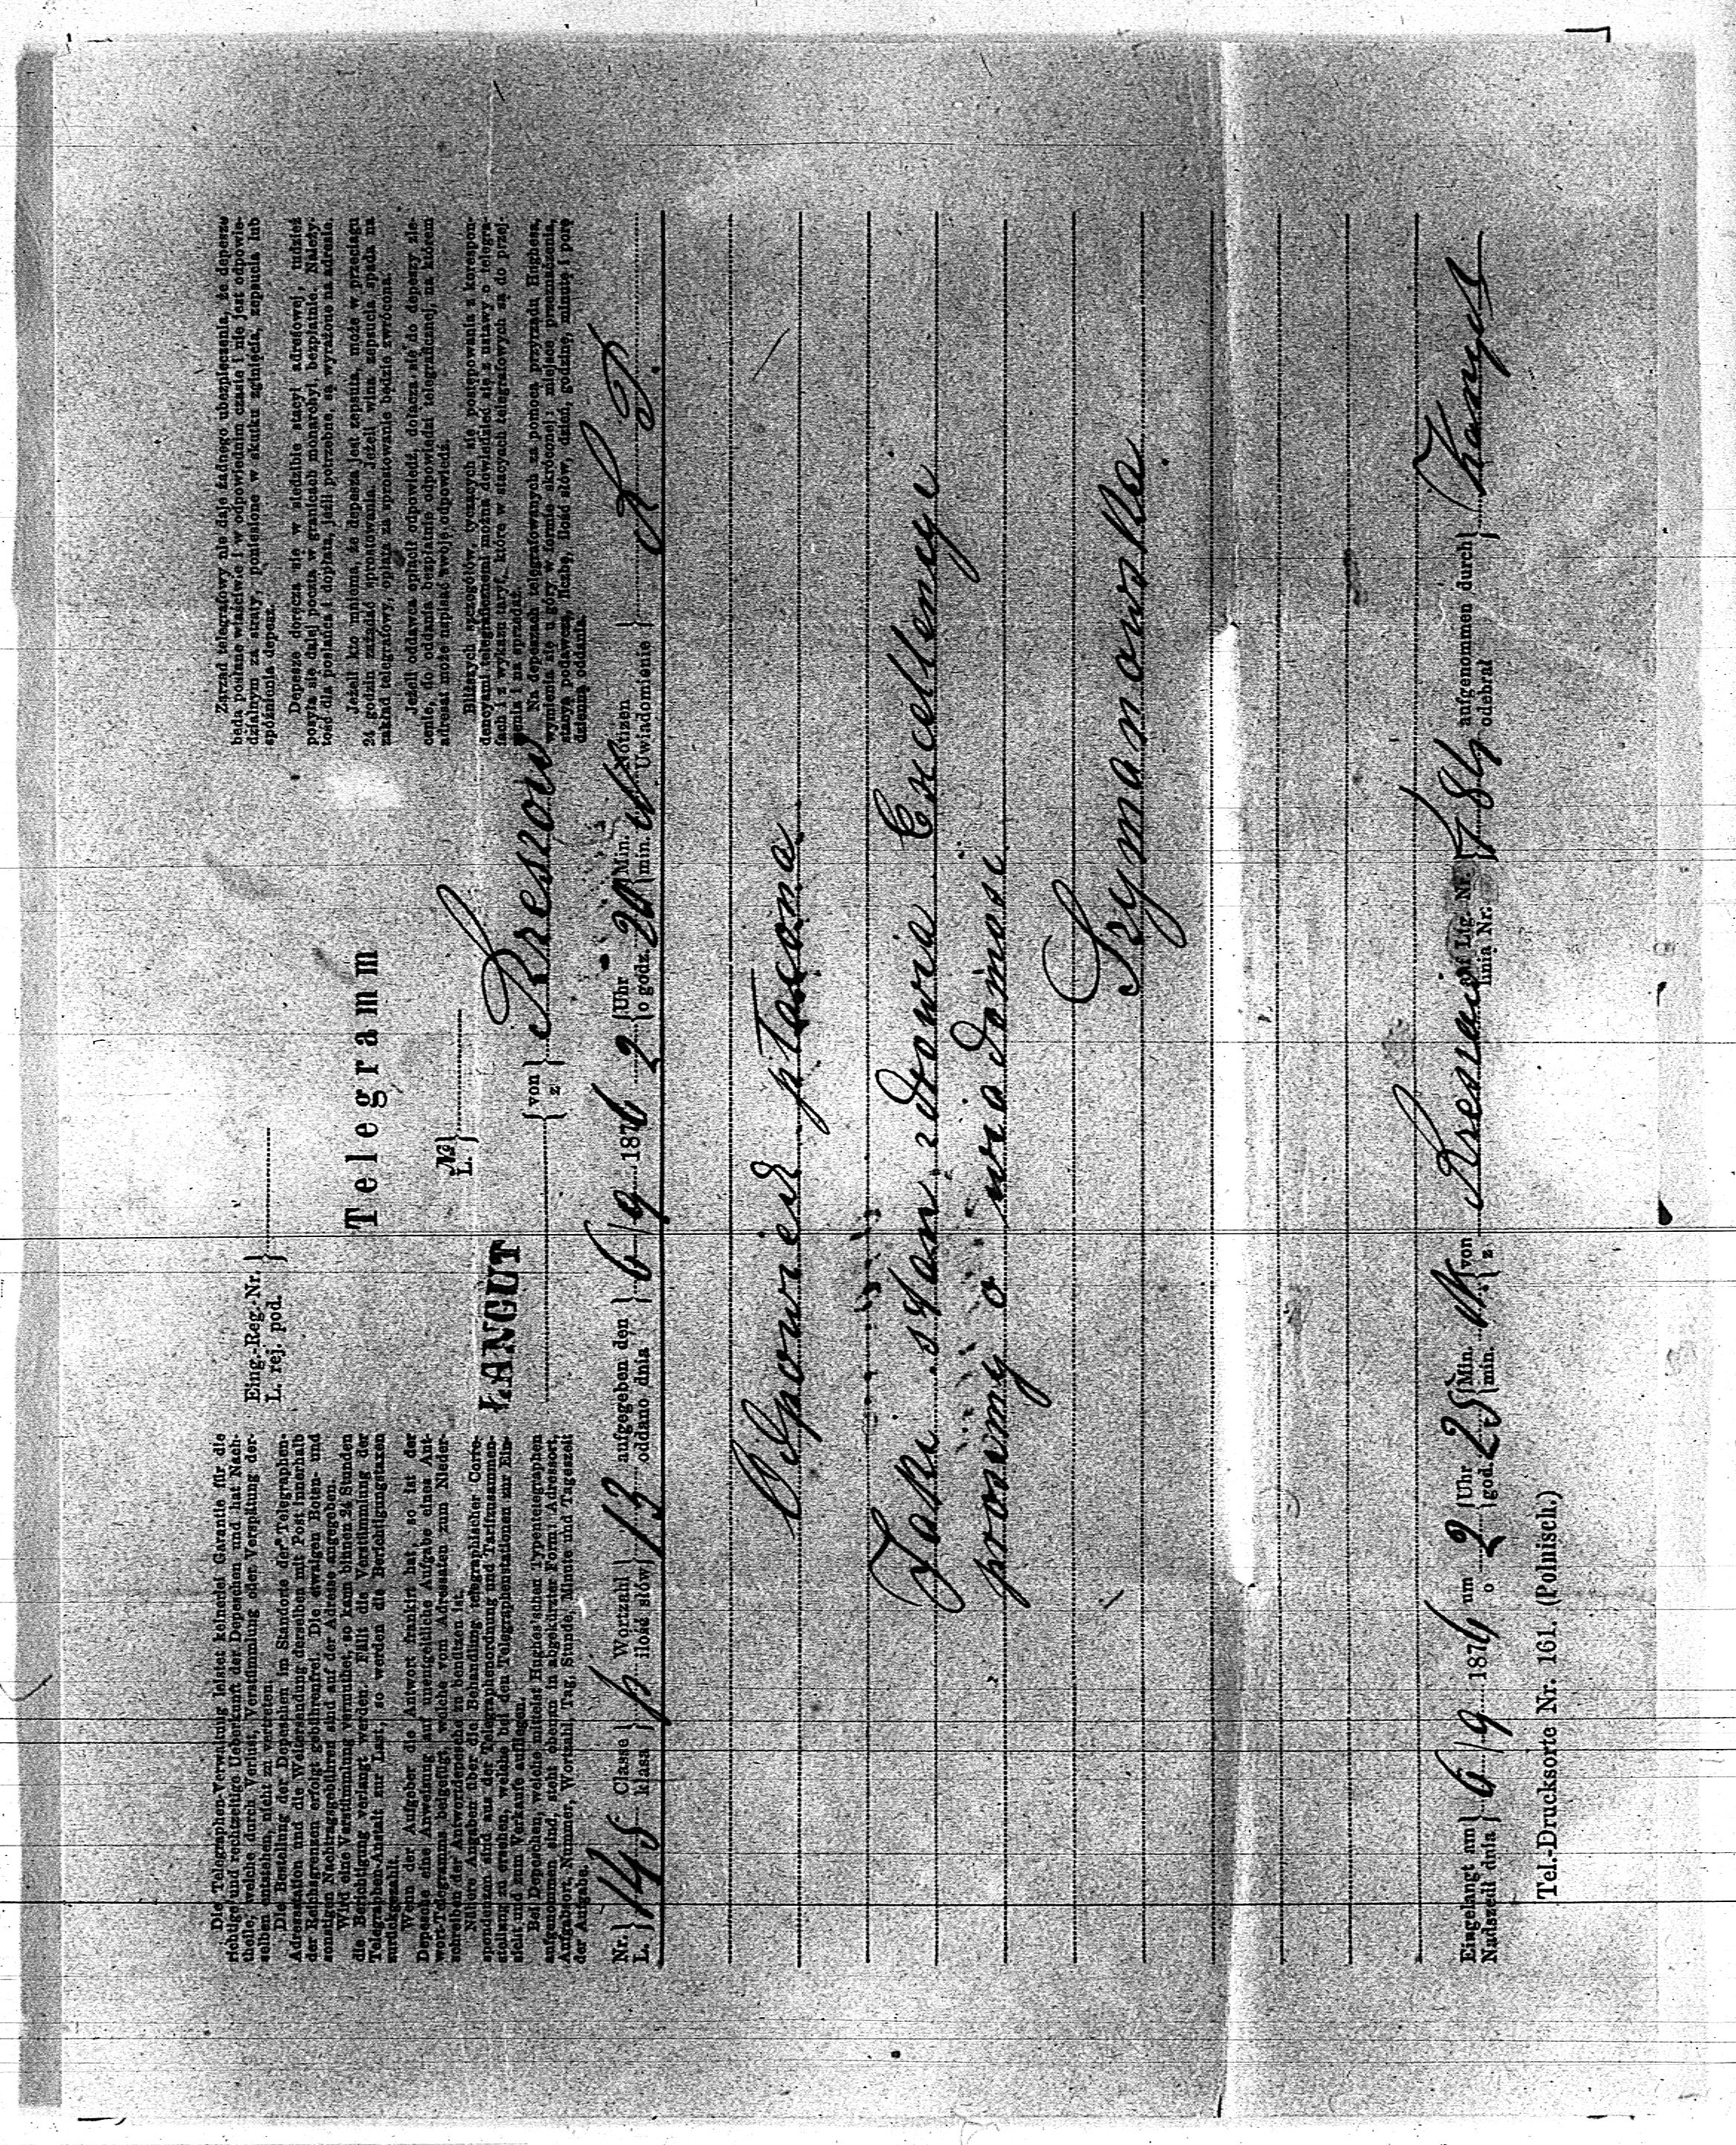 Die Telegraphen-Verwaltung leistet keinerlei Garantie für die
richtige und rechtzeitige Ueberkunft der Depeschen und hat Nach-
theile, welche durch Verlust, Verstümmlung oder Verspätung der-
selben entstehen, nicht zu vertreten.
Die Bestellung der Depeschen im Standorte der Telegraphen-
Adressstation und die Weitersendung derselben mit Post innerhalb
der Reichsgrenzen erfolgt gebührenfrei. Die etwaigen Boten- und
sonstigen Nachtragsgebühren sind auf der Adresse angegeben.
Wird eine Verstümmlung vermuthet, so kann binnen 24 Stunden
die Berichtigung verlangt werden. Fällt die Verstümmlung der
Telegraphen-Anstalt zur Last, so werden die Berichtigungstaxen
zurückgezahlt.
Wenn der Aufgeber die Antwort frankirt hat, so ist der
Depesche eine Anweisung auf unentgeldliche Aufgabe eines Ant-
wort-Telegramms beigefügt, welche vom Adressaten zum Nieder-
schreiben der Antwortdepesche zu benützen ist.
Nähere Angaben über die Behandlung telegraphischer Corre-
spondenzen sind aus der Telegraphenordnung und Tarifzusammen-
stellung zu ersehen, welche bei den Telegraphenstationen zur Ein-
sicht und zum Verkaufe aufliegen.
Bei Depeschen, welche mittelst Hughes'schen Typentelegraphen
aufgenommen sind, steht obenan in abgekürzter Form: Adressort,
Aufgabsort, Nummer, Wortzahl, Tag, Stunde, Minute und Tageszeit
der Aufgabe.
Eing.-Reg.-Nr.
L. rej. pod.
Telegramm
N
L.
ŁANCUT
von
z
Rressow
Zarząd telegrafowy nie daje żadnego ubezpieczenia, że depesze
będą posłane właściwie i w odpowiednim czasie i nie jest odpowie-
dzialnym za straty, poniesione w skutku zginięcia, zepsucia lub
spóźnienia depesz.
Depesze doręcza się w siedzibie stacyi adresowej, tudzież
posyła się dalej pocztą w granicach monarchyi, bezpłatnie. Należy-
tość dla posłańca i dopłata, jeźli potrzebne, są wyrażone na adresie.
Jeżeli kto mniema, że depesza jest zepsuta, może w przeciągu
24 godzin zażądać sprostowania. Jeżeli wina zepsucia spada na
zakład telegrafowy, opłata za sprostowanie będzie zwrócona.
Jeżeli oddawca opłacił odpowiedź, dołącza się do depeszy zle-
cenie, do oddania bezpłatnie odpowiedzi telegraficznej, na którem
adresat może napisać swoję odpowiedź.
Bliższych szczegółów, tyczących się postępowania z korespon-
dencyami telegraficznemi można dowiedzieć się z ustawy o telegra-
fach i z wykazu taryf, które w stacyach telegrafowych są do przej-
rzenia i na sprzedaż.
Na depeszach telegrafowanych za pomocą przyrządu Hughesa,
wymienia się u góry w formie skróconej: miejsce przeznaczenia,
stacyę podawczą, liczbę, ilość słów, dzień, godzinę, minutę i porę
dzienną oddania.
Nr. L. 145 Classe klasa p Wortzahl ilość słów 13 aufgegeben den oddano dnia 6/9 1876 2 Uhr o godz. 20 Min. min. N Notizen Uwiadomienie
Odpowied płacona
Jaki stan zdrowia Excellencyi
prosimy o wiadomosc
Szymanowska
Eingelangt am Nadszedł dnia 6/9 1876 um o 2 Uhr god. 25 Min. min. N. von z Rressow auf Ltg. Nr. linia Nr. 786 aufgenommen durch odebrał
Tel.-Drucksorte Nr. 161. (Polnisch.)